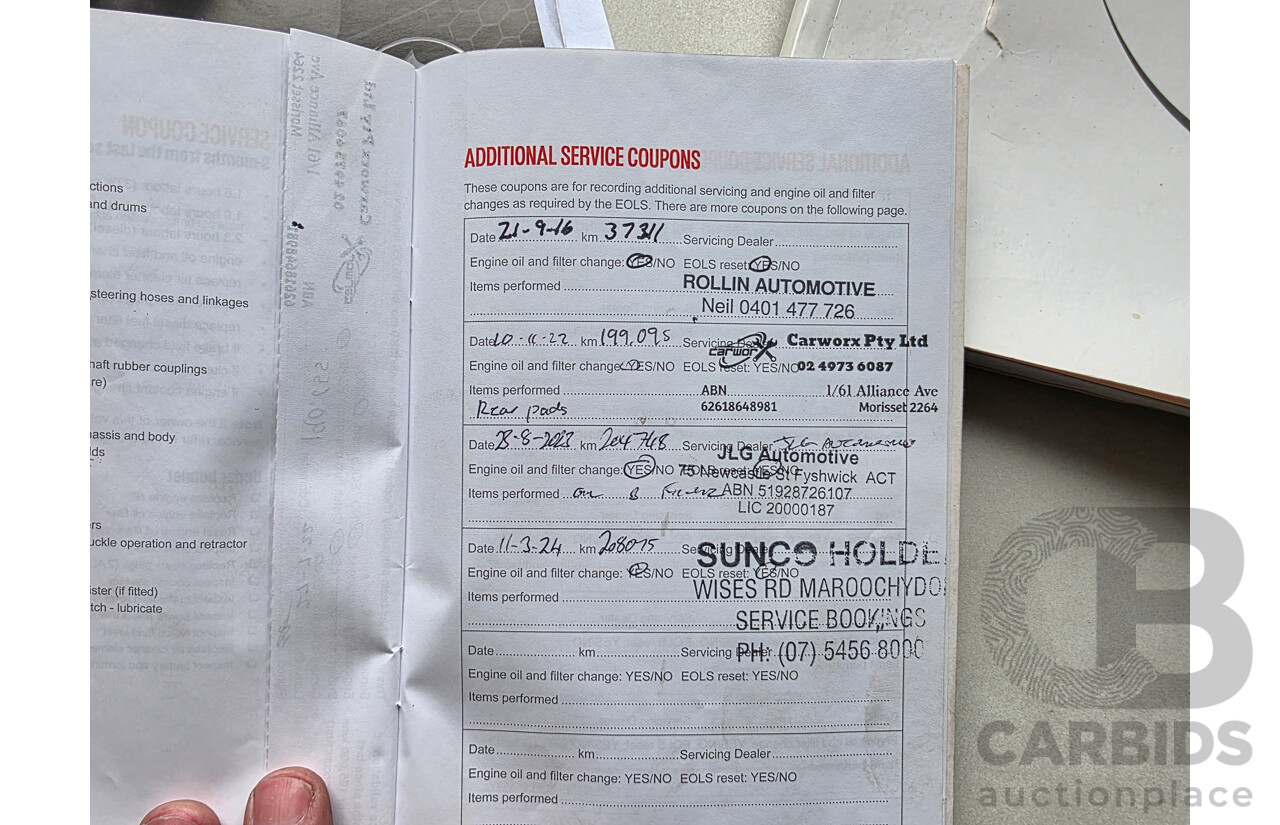 ctions
and drums
steering hoses and linkages
haft rubber couplings
re)
hassis and body
lds
ers
uckle operation and retractor
ister (if fitted)
tch - lubricate
ADDITIONAL SERVICE COUPONS
These coupons are for recording additional servicing and engine oil and filter
changes as required by the EOLS. There are more coupons on the following page.
Date 21-9-16 km 37311 Servicing Dealer
Engine oil and filter change: YES/NO EOLS reset: YES/NO
Items performed ROLLIN AUTOMOTIVE
Neil 0401 477 726
Date 10-11-22 km 199,095 Servicing Dealer carworx Carworx Pty Ltd
Engine oil and filter change: YES/NO EOLS reset: YES/NO 02 4973 6087
Items performed ABN 1/61 Alliance Ave
Rear pads 62618648981 Morisset 2264
Date 28-8-2023 km 204748 Servicing Dealer JLG Automotive
JLG Automotive
Engine oil and filter change: YES/NO EOLS reset: YES/NO 75 Newcastle St Fyshwick ACT
Items performed ABN 51928726107
LIC 20000187
Date 11-3-24 km 208075 Servicing Dealer SUNCO HOLDE
Engine oil and filter change: YES/NO EOLS reset: YES/NO
Items performed WISES RD MAROOCHYDO
SERVICE BOOKINGS
Date km Servicing Dealer PH: (07) 5456 8000
Engine oil and filter change: YES/NO EOLS reset: YES/NO
Items performed
Date km Servicing Dealer
Engine oil and filter change: YES/NO EOLS reset: YES/NO
Items performed
CB
CARBIDS
auctionplace